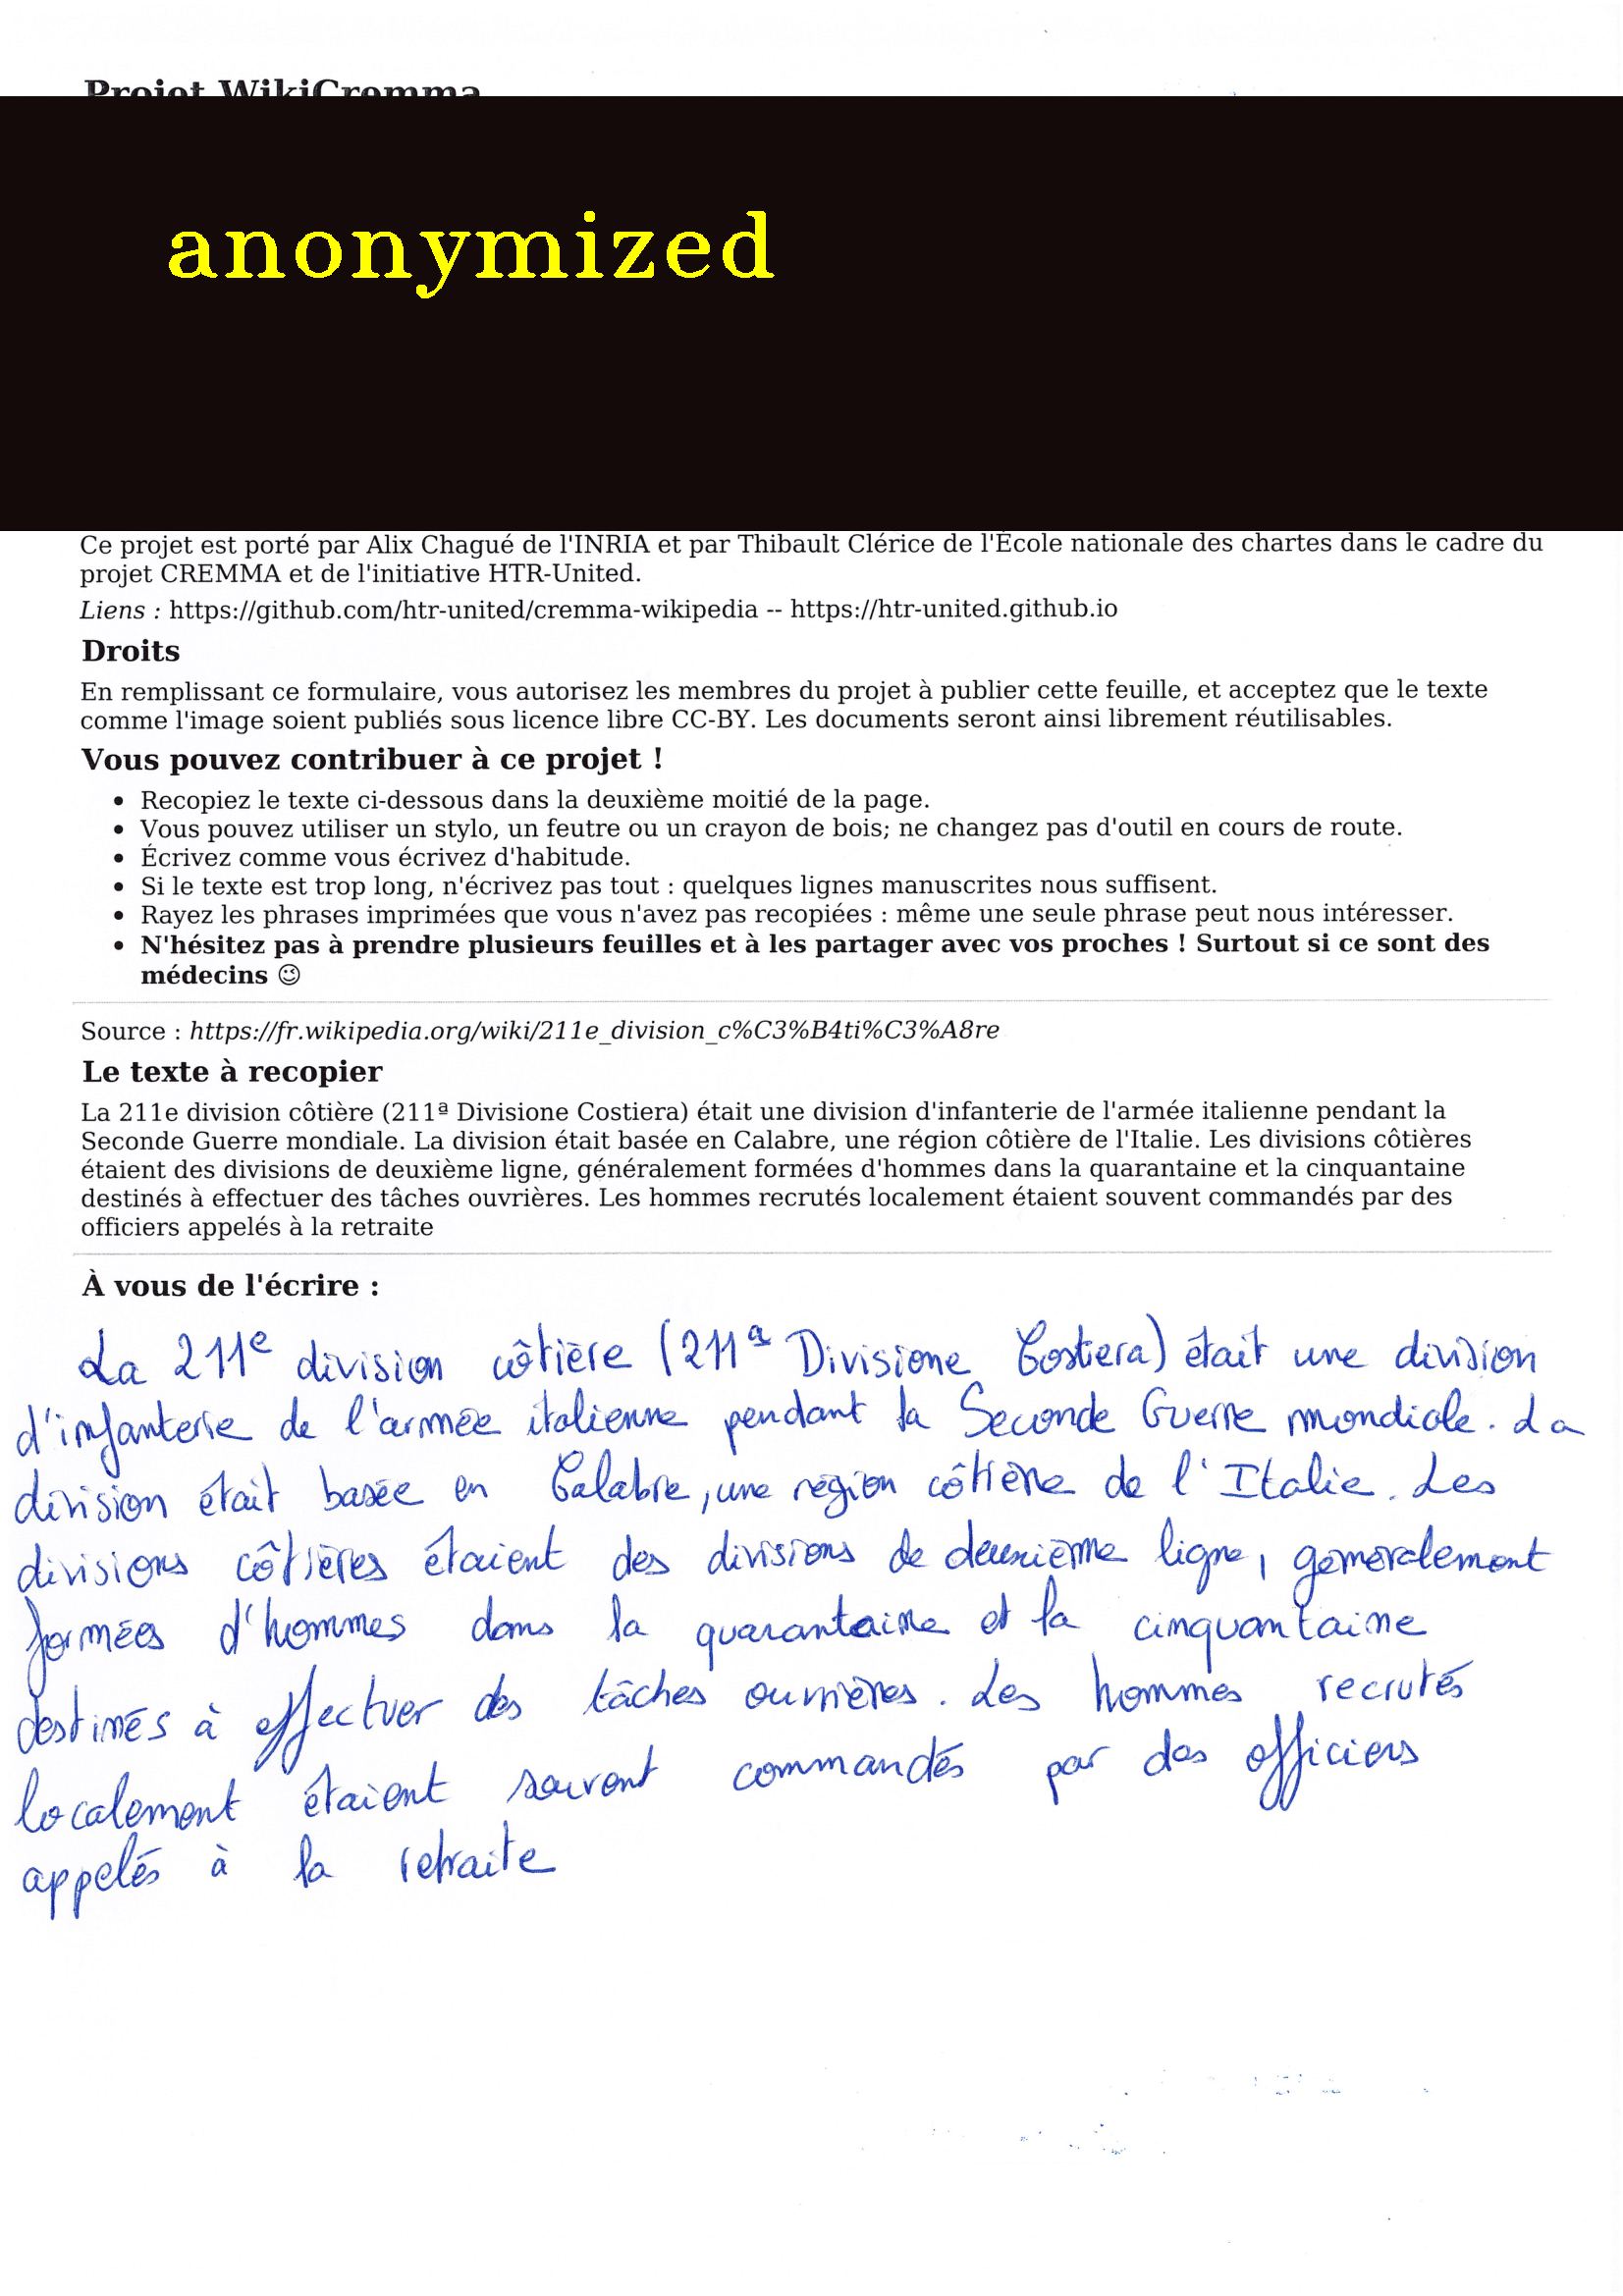 Projet WikiCremma
anonymized
Ce projet est porté par Alix Chagué de l'INRIA et par Thibault Clérice de l'École nationale des chartes dans le cadre du
projet CREMMA et de l'initiative HTR-United.
Liens : https://github.com/htr-united/cremma-wikipedia -- https://htr-united.github.io
Droits
En remplissant ce formulaire, vous autorisez les membres du projet à publier cette feuille, et acceptez que le texte
comme l'image soient publiés sous licence libre CC-BY. Les documents seront ainsi librement réutilisables.
Vous pouvez contribuer à ce projet !
• Recopiez le texte ci-dessous dans la deuxième moitié de la page.
• Vous pouvez utiliser un stylo, un feutre ou un crayon de bois; ne changez pas d'outil en cours de route.
• Écrivez comme vous écrivez d'habitude.
• Si le texte est trop long, n'écrivez pas tout : quelques lignes manuscrites nous suffisent.
• Rayez les phrases imprimées que vous n'avez pas recopiées : même une seule phrase peut nous intéresser.
• N'hésitez pas à prendre plusieurs feuilles et à les partager avec vos proches ! Surtout si ce sont des
médecins 😉
Source : https://fr.wikipedia.org/wiki/211e_division_c%C3%B4ti%C3%A8re
Le texte à recopier
La 211e division côtière (211ª Divisione Costiera) était une division d'infanterie de l'armée italienne pendant la
Seconde Guerre mondiale. La division était basée en Calabre, une région côtière de l'Italie. Les divisions côtières
étaient des divisions de deuxième ligne, généralement formées d'hommes dans la quarantaine et la cinquantaine
destinés à effectuer des tâches ouvrières. Les hommes recrutés localement étaient souvent commandés par des
officiers appelés à la retraite
À vous de l'écrire :
La 211e division côtière (211ª Divisione Costiera) était une division
d'infanterie de l'armée italienne pendant la Seconde Guerre mondiale. La
division était basée en Calabre, une région côtière de l'Italie. Les
divisions côtières étaient des divisions de deuxième ligne, généralement
formées d'hommes dans la quarantaine et la cinquantaine
destinés à effectuer des tâches ouvrières. Les hommes recrutés
localement étaient souvent commandés par des officiers
appelés à la retraite